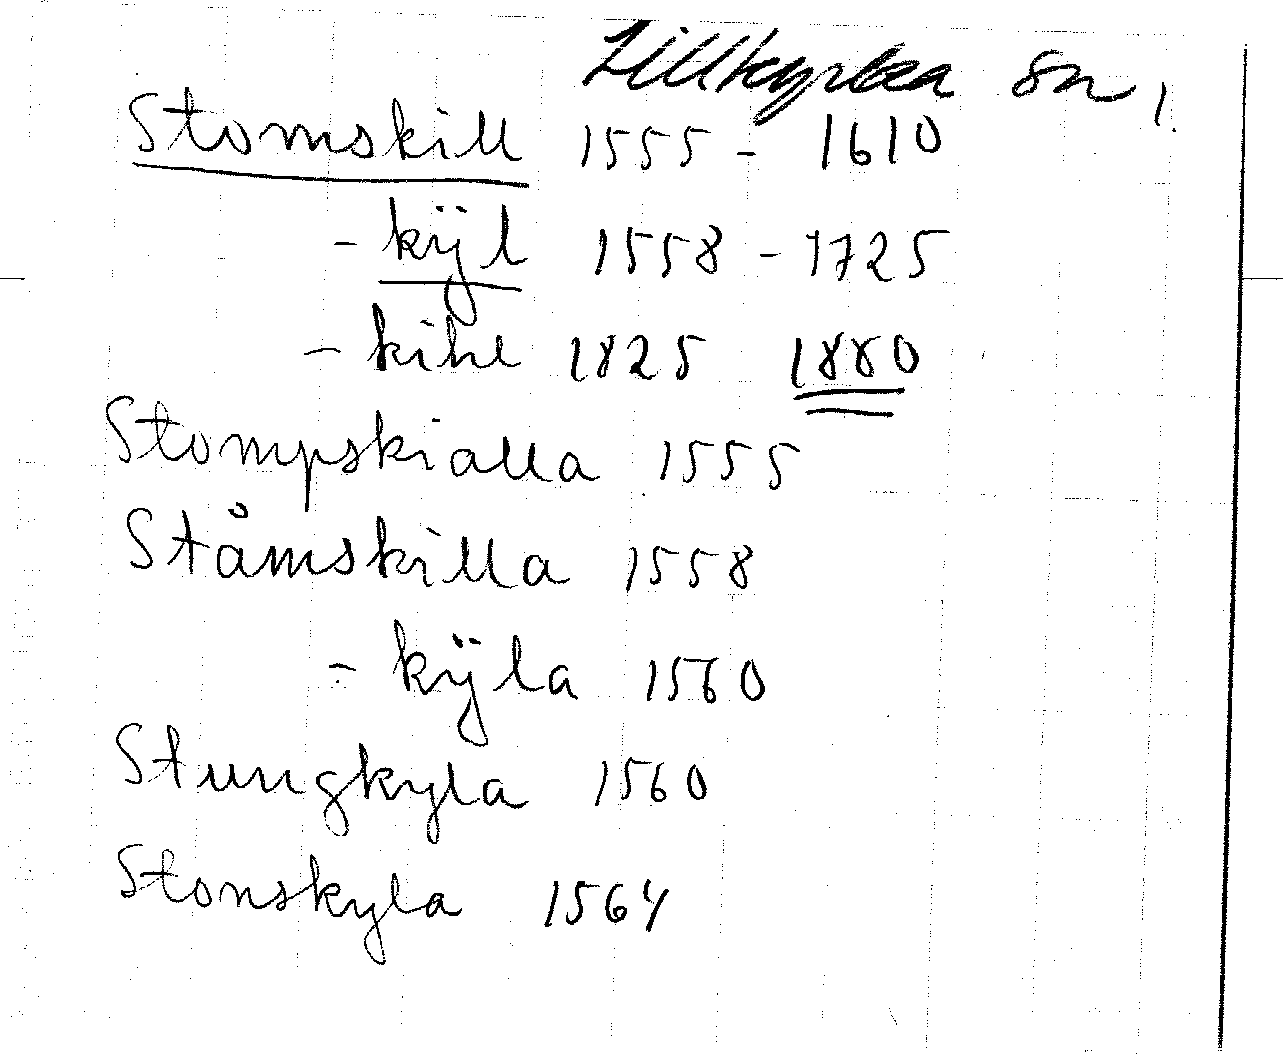 Lillkyrka sn,
Stomskill 1555 - 1610
- kÿl 1558 - 1725
- kihl 1825 1880
Stompskialla 1555
Ståmskilla 1558
- kÿla 1560
Stungkyla 1560
Stonskyla 1564